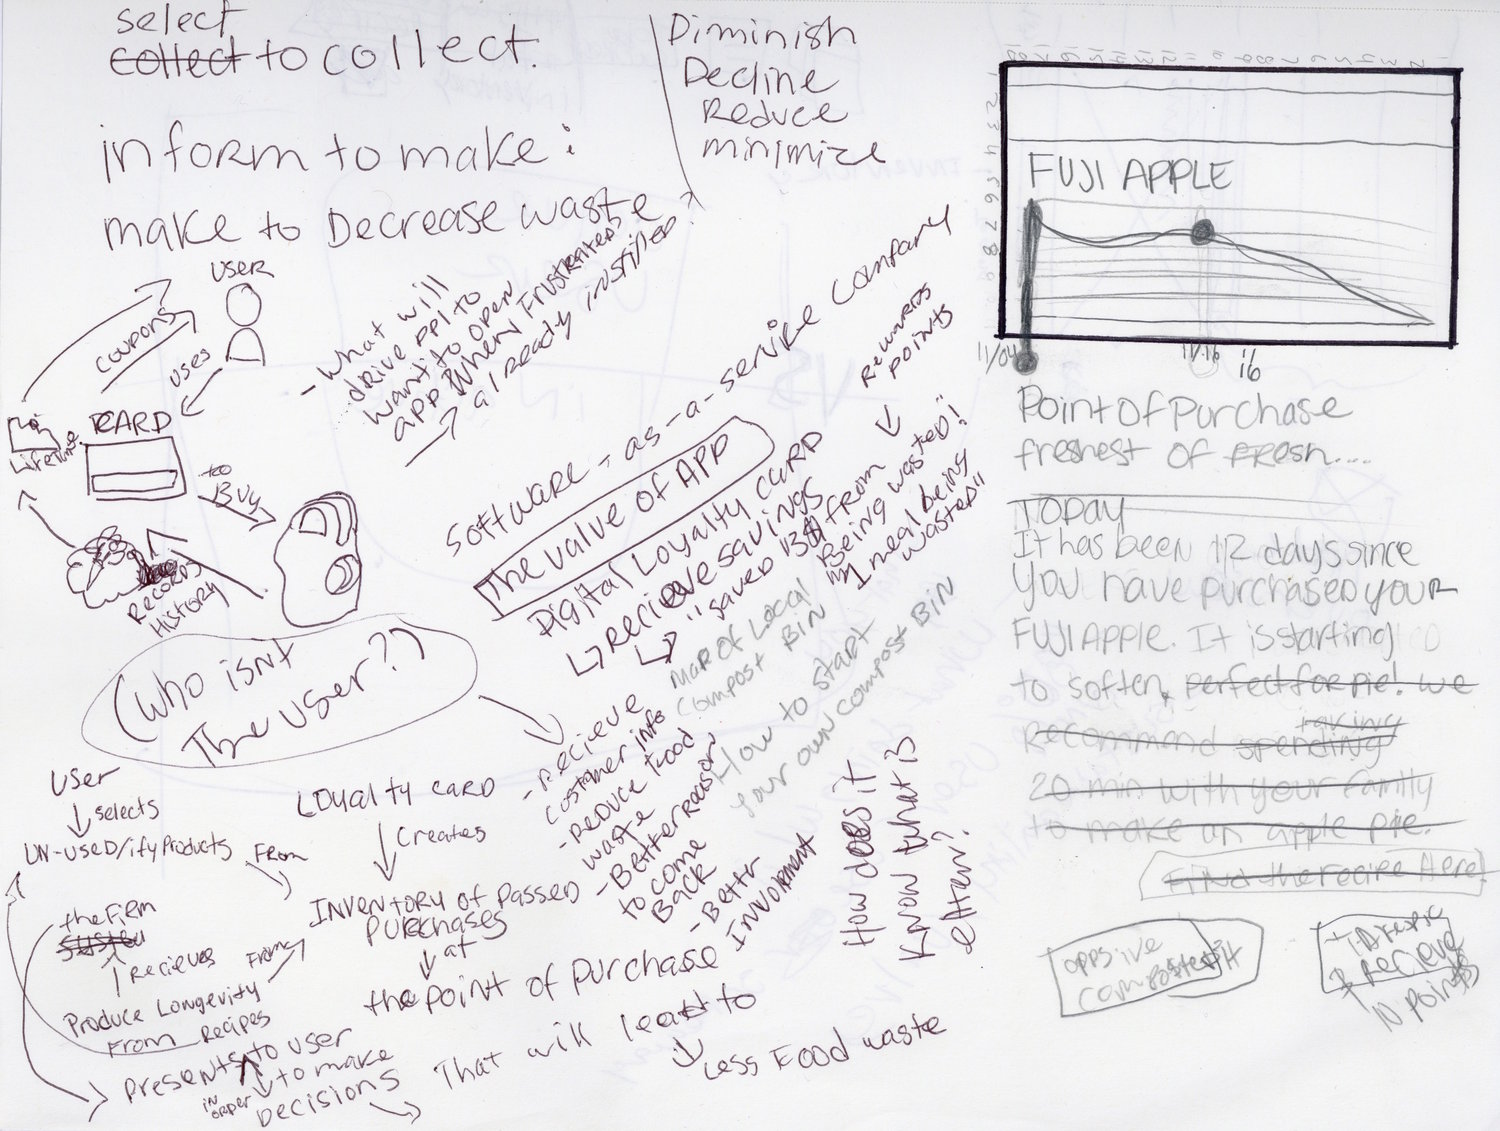 select
collect to collect.
inform to make:
make to Decrease waste
Diminish
Decline
Reduce
minimize
USER
coupons
uses
CARD
Lifetime
to
Buy
Records
History
- what will
drive ppl to
want to open
app when Frustrated?
already instilled
Software-as-a-service company
The value of APP
Digital Loyalty card
Recieve savings
"saved 13 from
Being wasted!
1 meal being
wasted"
Rewards
points
Map of Local
compost Bin
How to start
your own compost Bin
(Who isnt
The user?)
- recieve
customer info
- Reduce Food
waste
- Better reason
to come
Back
- Better
Involment
How does it
Know what is
eaten?
User
selects
UN-useD/ify Products
From
Loyalty card
Creates
Inventory of Passed
Purchases
at
the point of purchase
the Firm
system
Recieves
From
Produce Longevity
From Recipes
Presents to user
in order
to make
Decisions
That will lead to
Less Food waste
FUJI APPLE
11/04
11/16
16
Point of Purchase
freshest of Fresh....
TODAY
It has been 12 days since
you have purchased your
FUJI APPLE. It is starting
to soften, perfect for pie! we
taking
recommend spending
20 min with your family
to make an apple pie.
Find the recipe Here!
composted it
I
& Recieve
points